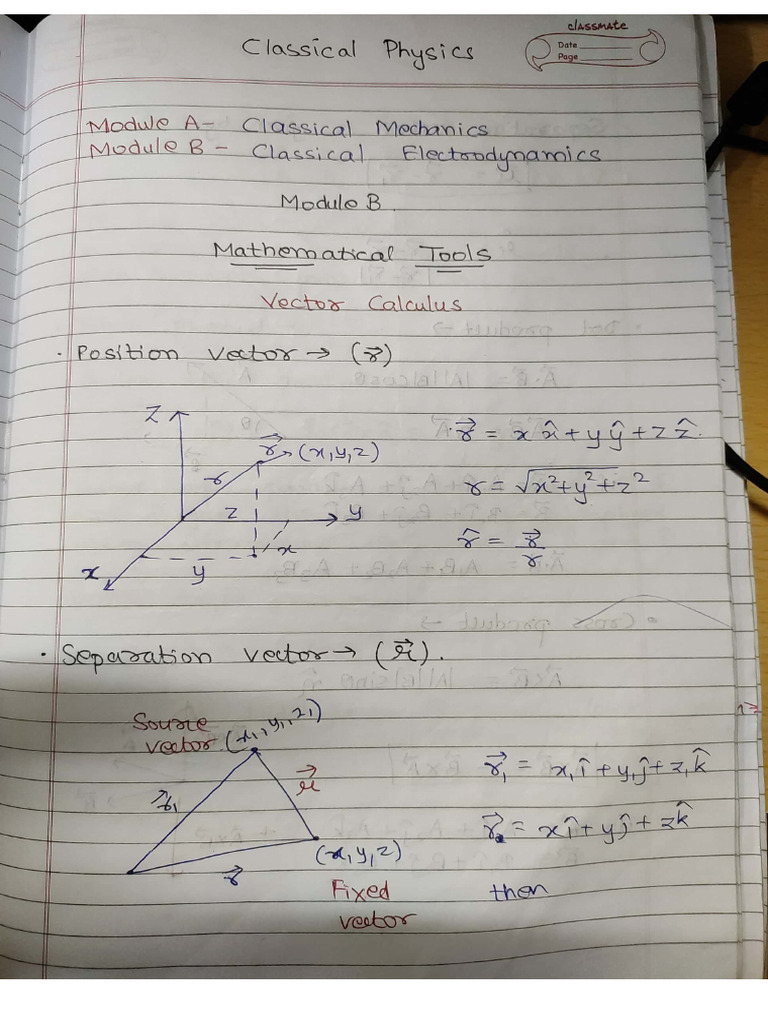 Classical Physics
classmate
Date
Page
Module A- Classical Mechanics
Module B - Classical Electrodynamics
Module B.
Mathematical Tools
Vector Calculus
· Position vector → (r⃗)
z
r⃗ → (x, y, z)
r
z
y
x
x
y
r⃗ = x x̂ + y ŷ + z ẑ.
r = √x²+y²+z²
r̂ = r⃗/r
· Separation vector → (𝓇⃗).
Source
vector (x₁, y₁, z₁)
r⃗₁
𝓇⃗
(x, y, z)
r⃗
Fixed
vector
r⃗₁ = x₁î + y₁ĵ + z₁k̂
r⃗ = xî + yĵ + zk̂
then